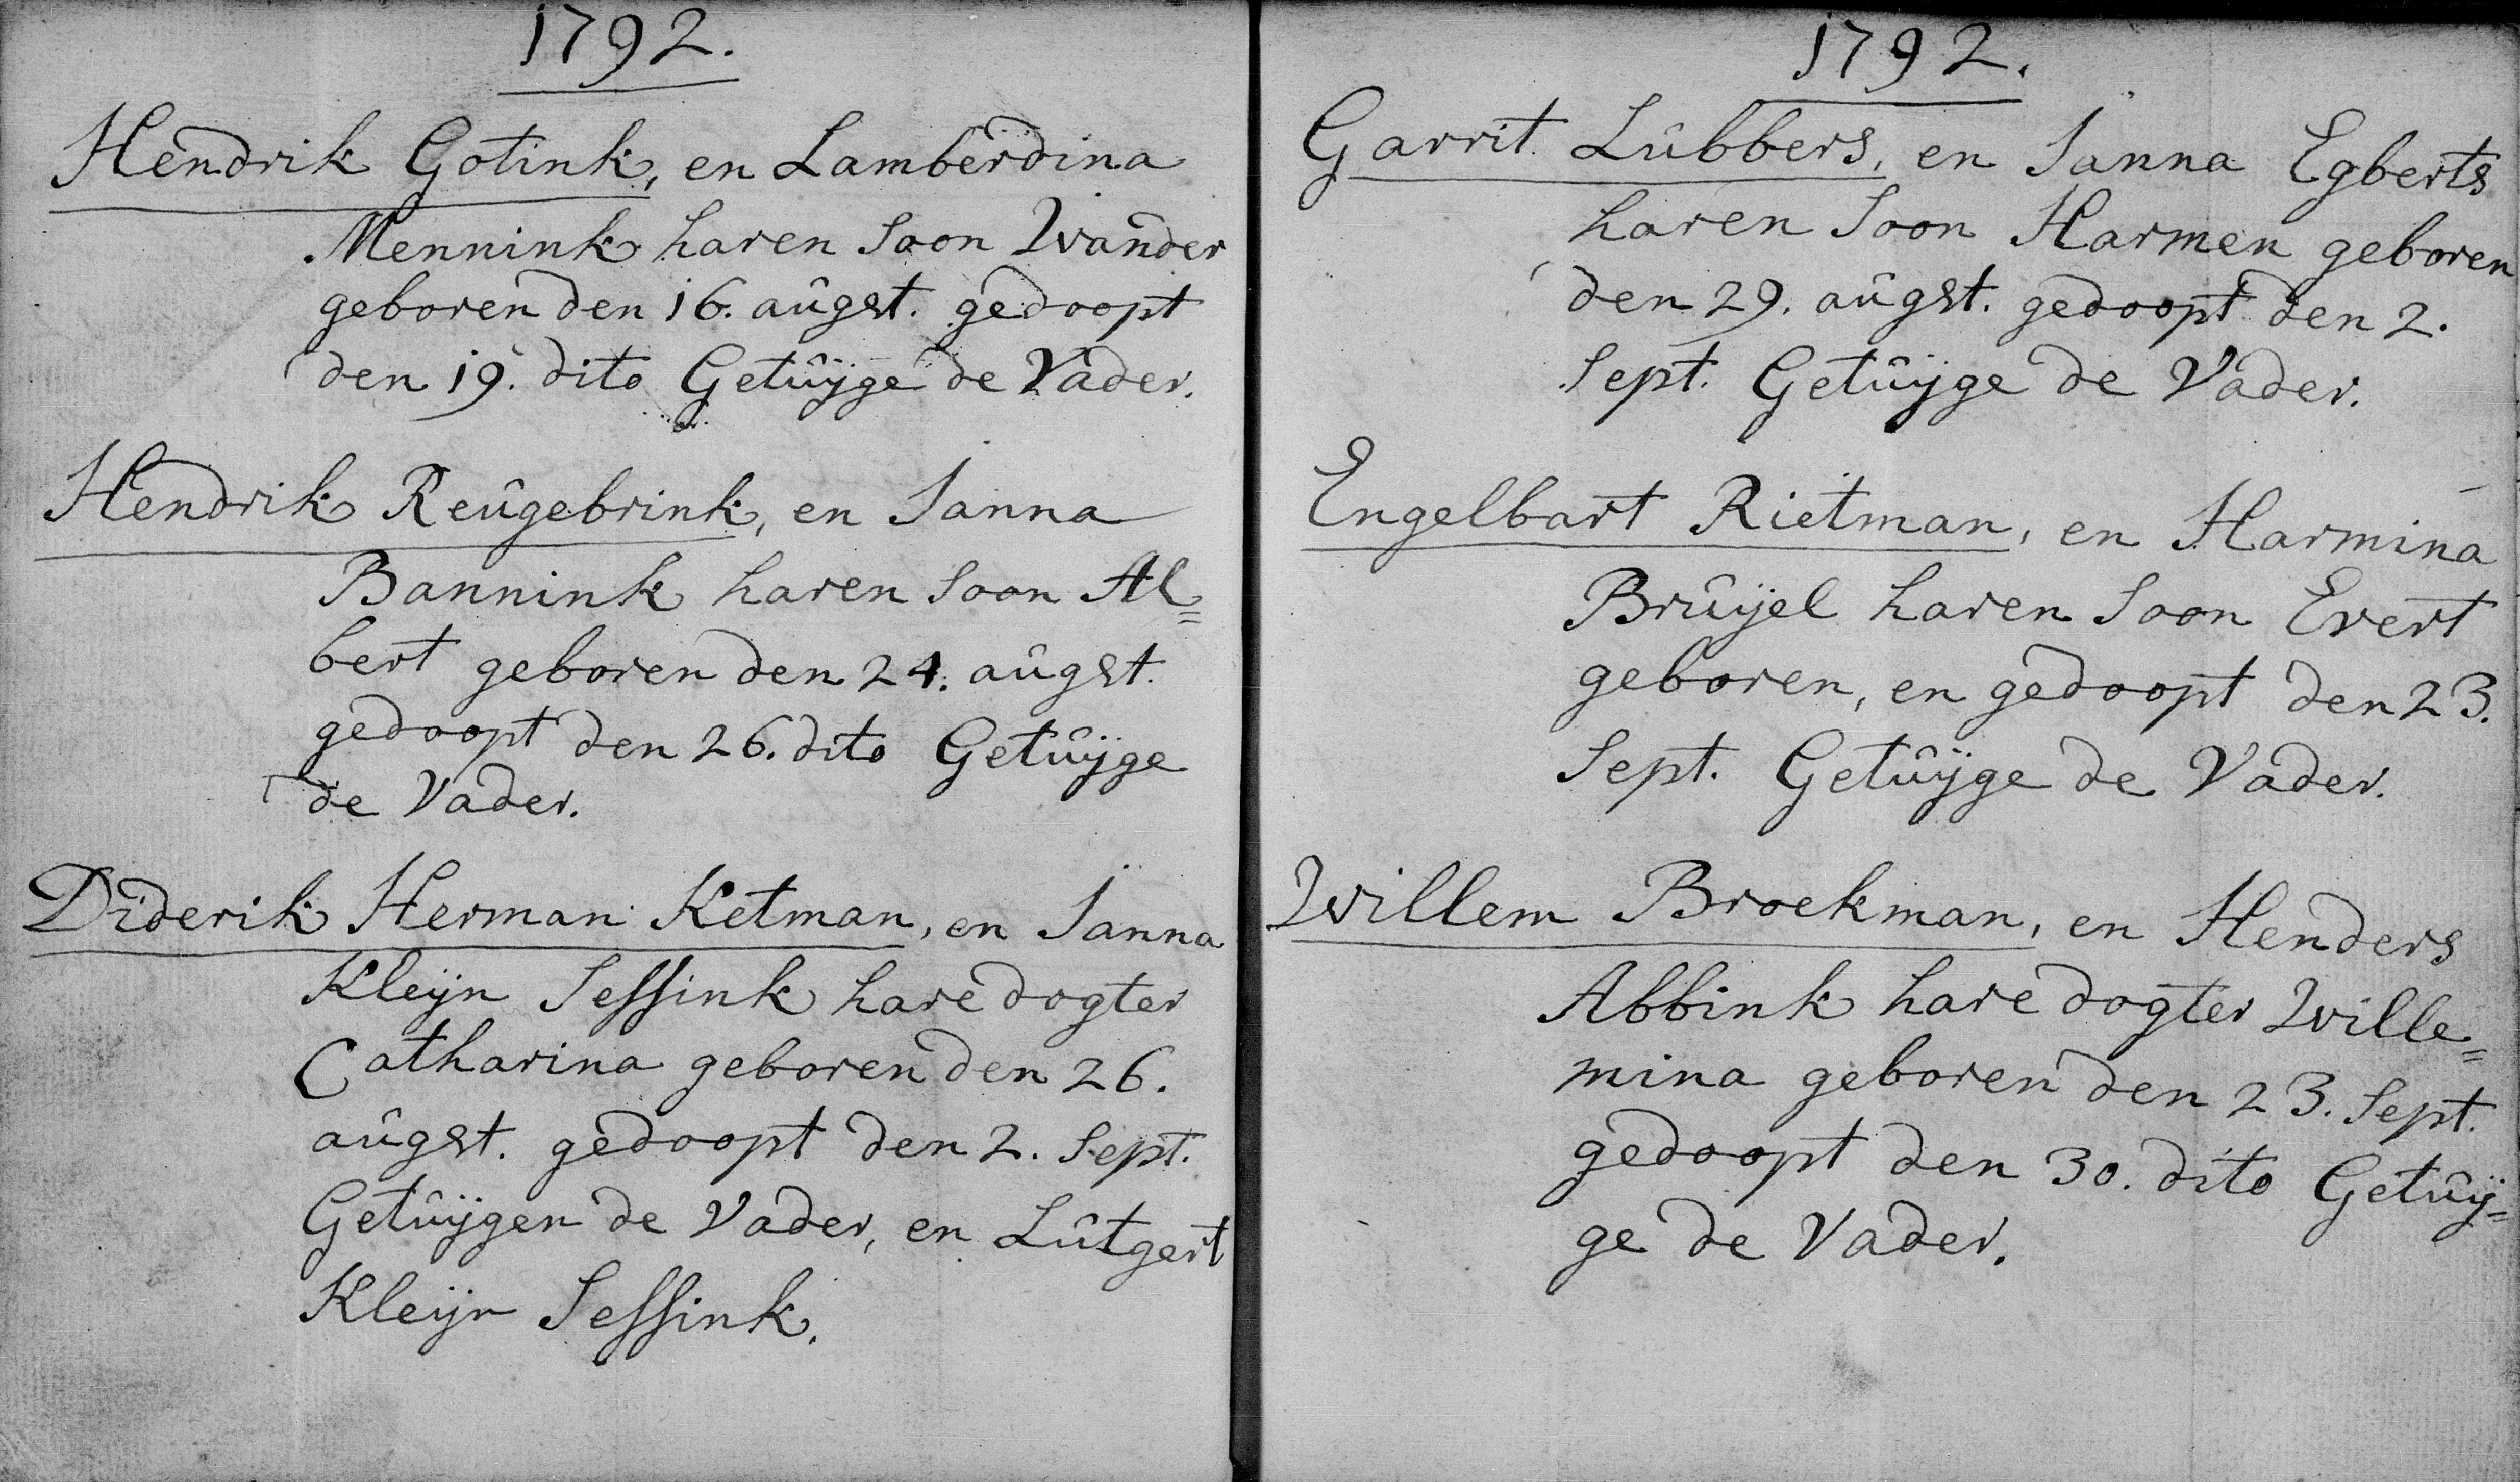 1792.
Hendrik Gotink, en Lamberdina
Mennink haren Soon Wander
geboren den 16. aûgst. gedoopt
den 19. dito Getûÿge de Vader.
Hendrik Reûgebrink, en Janna
Bannink haren Soon Al=
bert geboren den 24. aûgst.
gedoopt den 26. dito Getûÿge
de Vader.
Diderik Herman Ketman, en Janna
Kleÿn Sessink hare dogter
Catharina geboren den 26.
aûgst. gedoopt den 2. Sept.
Getûÿgen de Vader, en Lûtgert
Kleÿn Sessink.
1792.
Garrit Lûbbers, en Janna Egberts
haren Soon Harmen geboren
den 29. aûgst. gedoopt den 2.
Sept. Getûÿge de Vader.
Engelbart Rietman, en Harmina
Brûÿel haren Soon Evert
geboren, en gedoopt den 23.
Sept. Getûÿge de Vader.
Willem Broekman, en Henders
Abbink hare dogter Wille=
mina geboren den 23. Sept.
gedoopt den 30. dito Getûÿ=
ge de Vader.